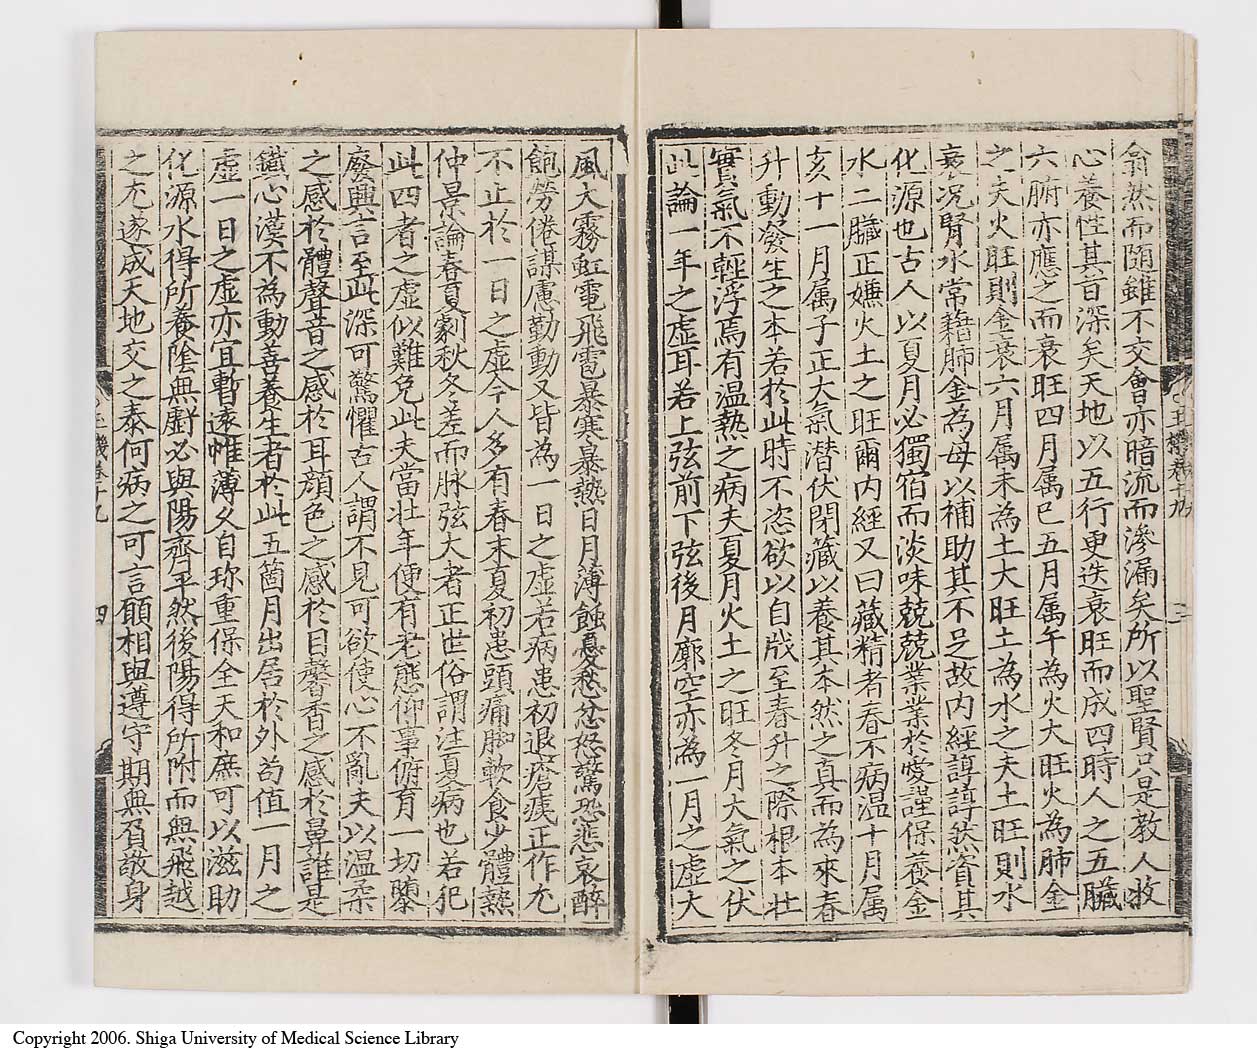 翕然而隨雖不交會亦暗流而滲漏矣所以聖賢只是教人收
心養性其旨深矣天地以五行更迭衰旺而成四時人之五臟
六腑亦應之而衰旺四月属巳五月属午為火大旺火為肺金
之夫火旺則金衰六月属未為土大旺土為水之夫土旺則水
衰况腎水常籍肺金為母以補助其不足故内經諄諄然資其
化源也古人以夏月必獨宿而淡味兢兢業業於愛謹保養金
水二臟正嫌火土之旺爾内經又曰藏精者春不病温十月属
亥十一月属子正大氣潜伏閉藏以養其本然之真而為來春
升動發生之本若於此時不恣欲以自戕至春升之際根本壮
實氣不輕浮焉有温熱之病夫夏月火土之旺冬月大氣之伏
此論一年之虚耳若上弦前下弦後月廓空亦為一月之虚大
玉機卷十九
風大霧虹電飛雹暴寒暴熱日月薄蝕憂愁忿怒驚恐悲哀醉
飽勞倦謀慮勤動又皆為一日之虚若病患初退瘡痍正作尤
不止於一日之虚今人多有春末夏初患頭痛脚軟食少體熱
仲景論春夏劇秋冬差而脉弦大者正世俗謂注夏病也若犯
此四者之虚似難免此夫當壮年便有老態仰事俯育一切隳
廢興言至此深可驚懼古人謂不見可欲使心不亂夫以温柔
之感於體聲音之感於耳顔色之感於目馨香之感於鼻誰是
鐵心漢不為動善養生者於此五箇月出居於外苟值一月之
虚一日之虚亦宜暫遠帷薄父自珎重保全天和庶可以滋助
化源水得所養陰無虧必與陽齊平然後陽得所附而無飛越
之尤遂成天地交之泰何病之可言願相與遵守期無負敬身
玉機卷十九
四
Copyright 2006. Shiga University of Medical Science Library